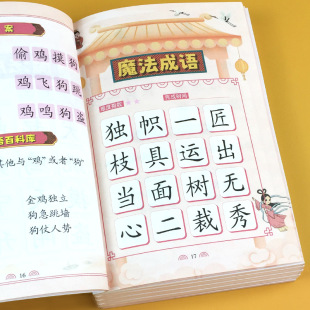 案
偷鸡摸狗
鸡飞狗跳
鸡鸣狗盗
百科库
其他与“鸡”或者“狗”
金鸡独立
狗急跳墙
狗仗人势
16
魔法成语
独帜一匠
枝具运出
当面树无
心二裁秀
17